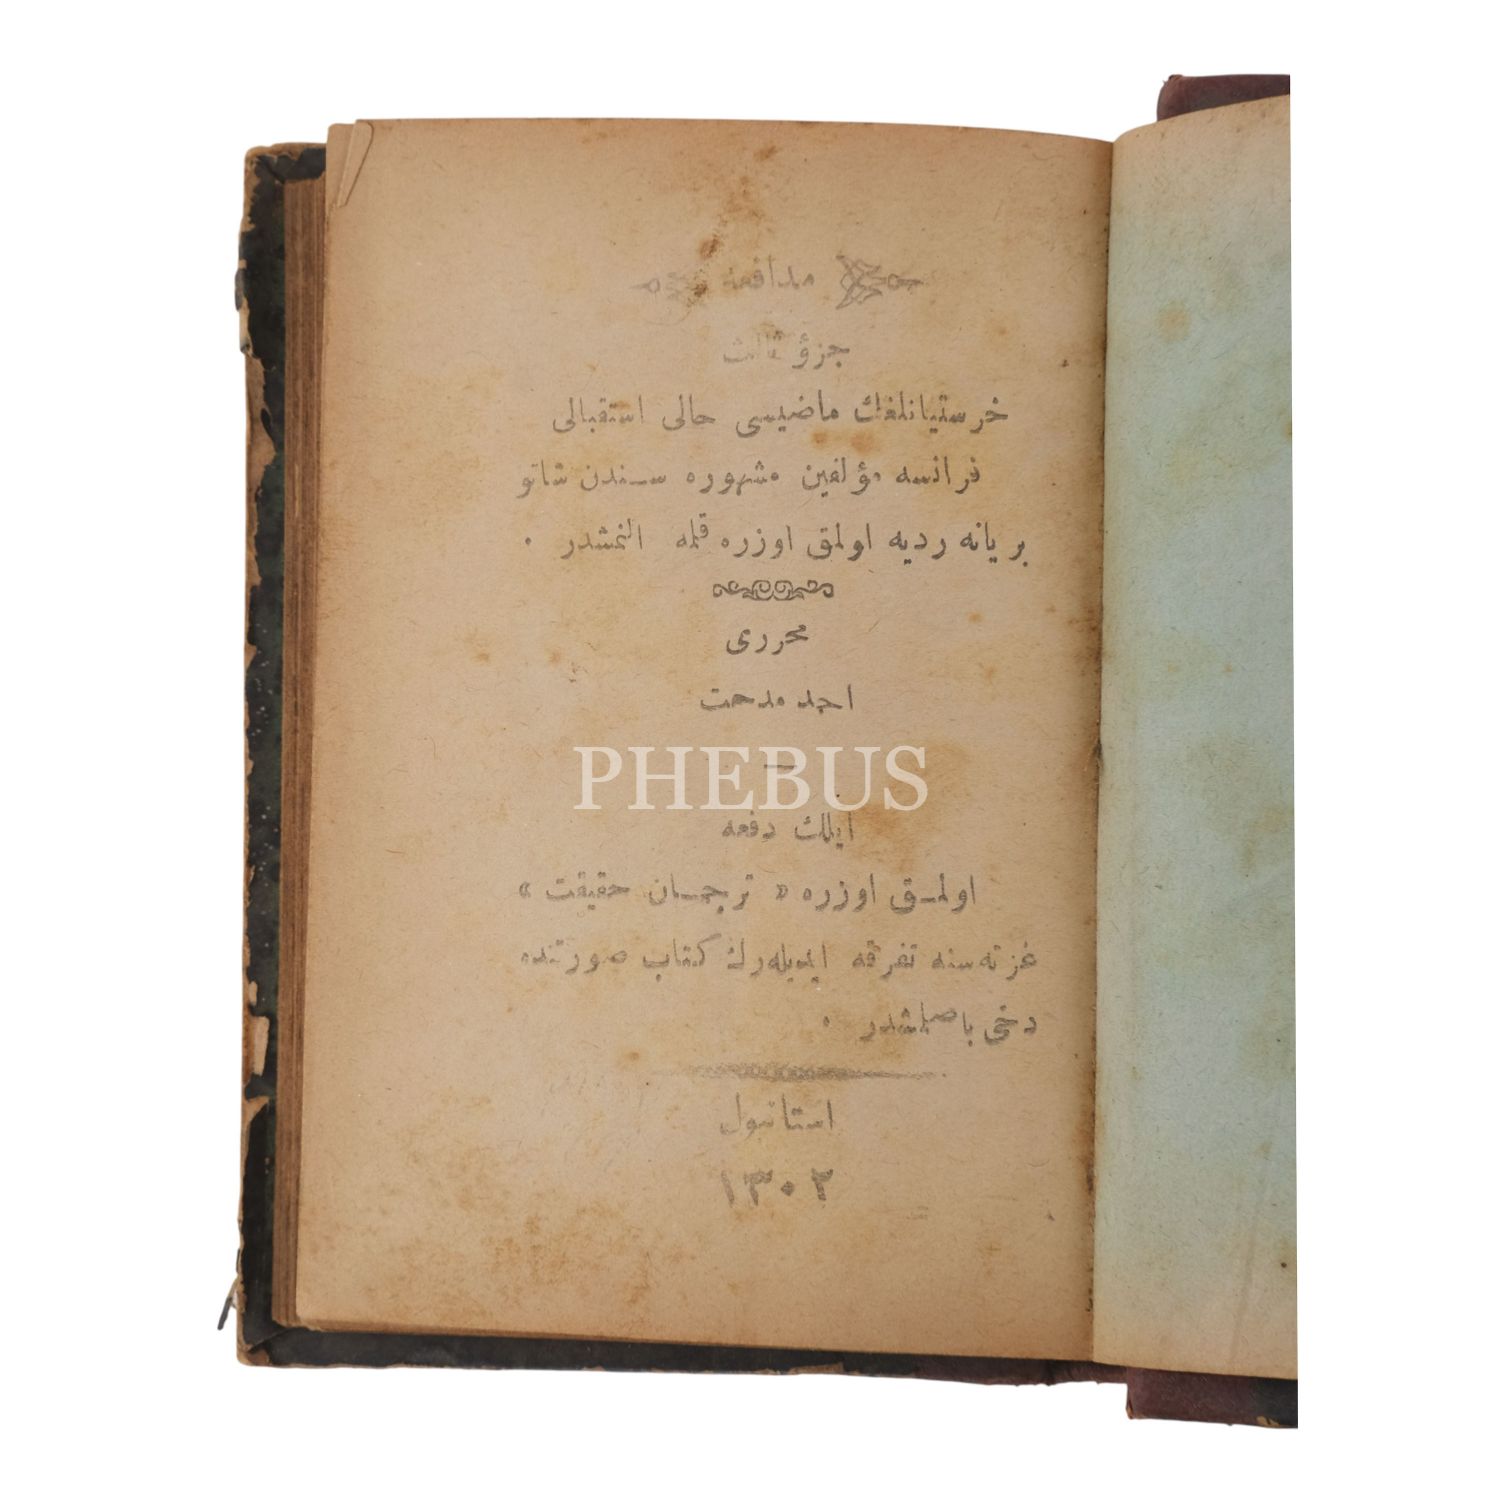 مدافعه
جزؤ ثالث
خرستیانلغك ماضیسی حالی استقبالی
فرانسه مؤلفین مشهوره سندن شاتو
بریانه ردیه اولمق اوزره قلمه النمشدر .
محرری
احمد مدحت
PHEBUS
ایلك دفعه
اولمق اوزره « ترجمان حقیقت »
غزته سنه تفرقه ایدیله رك کتاب صورتنده
دخی باصلمشدر .
استانبول
۱۳۰۲